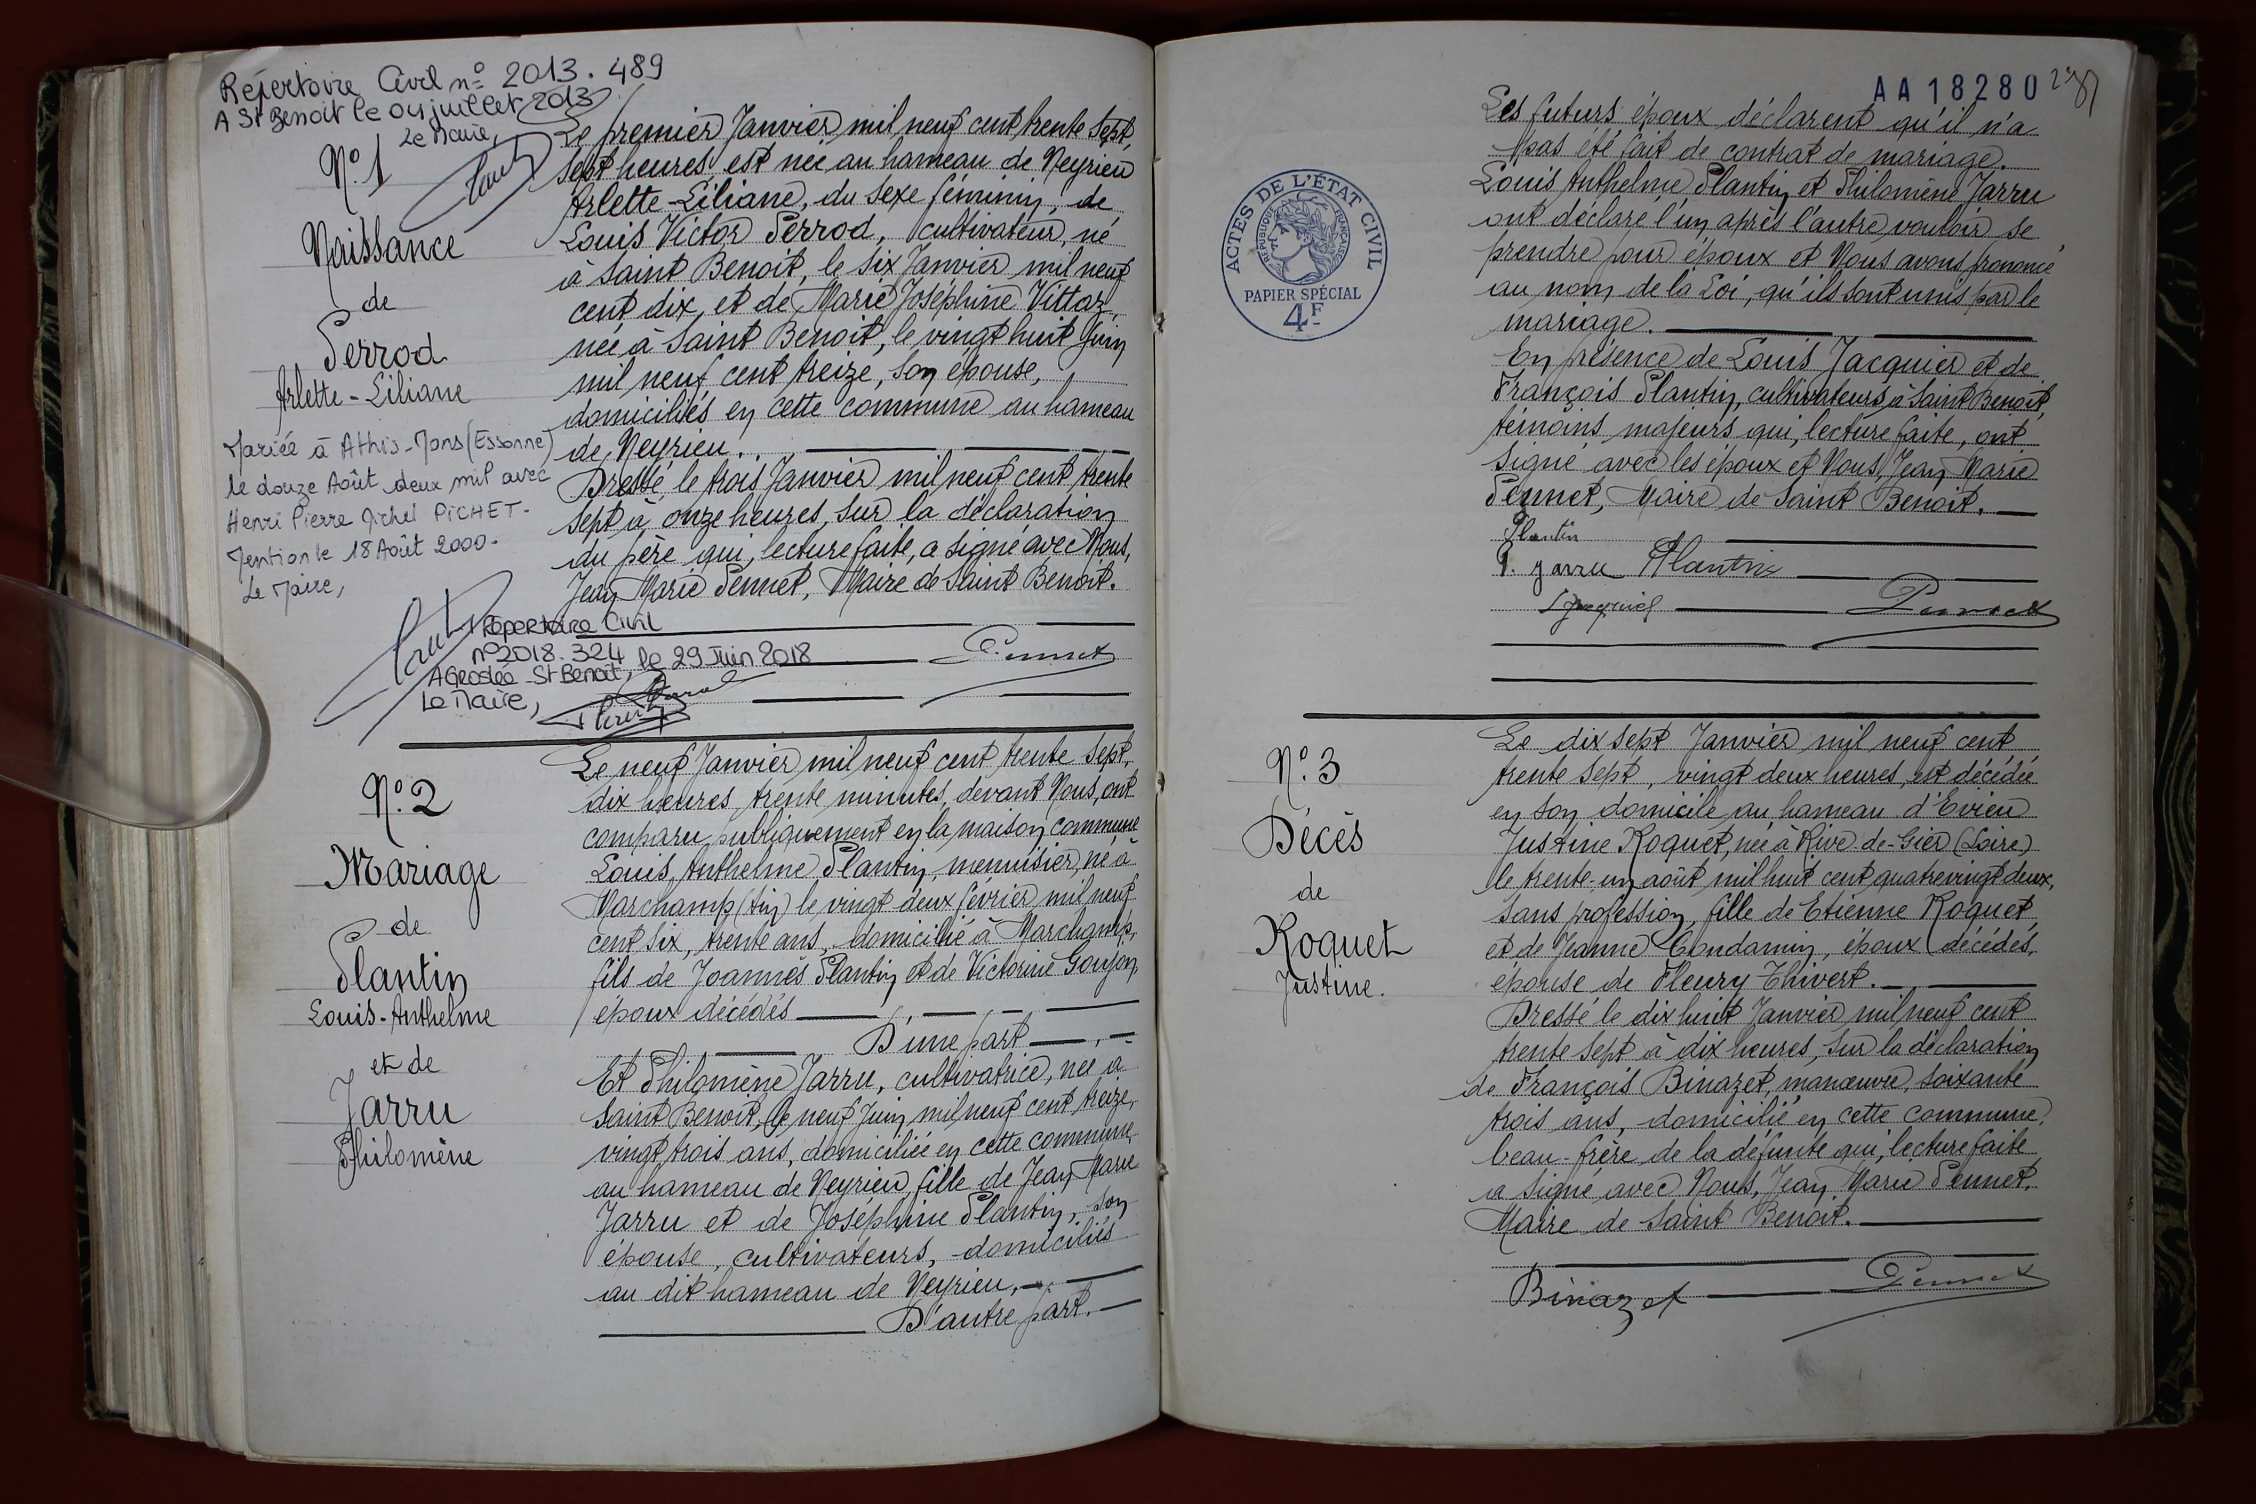 Répertoire Civil n° 2013.489
A St Benoit le 04 juillet 2013
Le Maire,
N° 1
Naissance
de
Perrod
Arlette-Liliane
Mariée à Athis-Mons (Essonne)
le douze Août deux mil avec
Henri Pierre Michel PICHET-
Mention le 18 Août 2000-
Le Maire,
Le premier Janvier mil neuf cent trente sept,
sept heures, est née au hameau de Neyrieu
Arlette-Liliane, du sexe féminin, de
Louis Victor Perrod, cultivateur, né
à Saint Benoit, le six Janvier mil neuf
cent dix, et de Marie Joséphine Vittaz,
née à Saint Benoit, le vingt huit Juin
mil neuf cent treize, son épouse,
domiciliés en cette commune au hameau
de Neyrieu.
Dressé le trois Janvier mil neuf cent trente
sept à onze heures, sur la déclaration
du père qui, lecture faite, a signé avec Nous,
Jean Marie Pennet, Maire de Saint Benoit.
Répertoire Civil
n°2018.324
A Groslée-St Benoit, le 29 Juin 2018
Le Maire,
Pennet
N° 2
Mariage
de
Plantin
Louis-Anthelme
et de
Jarru
Philomène
Le neuf Janvier mil neuf cent trente sept,
dix heures trente minutes, devant Nous, ont
comparu publiquement en la maison commune
Louis Anthelme Plantin, menuisier, né à
Marchamp (Ain) le vingt deux février mil neuf
cent six, trente ans, domicilié à Marchamp,
fils de Joannès Plantin et de Victorine Goujon,
époux décédés
D'une part
Et Philomène Jarru, cultivatrice, née à
Saint Benoit, le neuf Juin mil neuf cent treize,
vingt trois ans, domiciliée en cette commune,
au hameau de Neyrieu, fille de Jean Marie
Jarru et de Joséphine Plantin, son
épouse, cultivateurs, domiciliés
au dit hameau de Neyrieu,
D'autre part.
AA18280
Les futurs époux déclarent qu'il n'a
pas été fait de contrat de mariage.
Louis Anthelme Plantin et Philomène Jarru
ont déclaré l'un après l'autre vouloir se
prendre pour époux et Nous avons prononcé
au nom de la Loi, qu'ils sont unis par le
mariage.
En présence de Louis Jacquier et de
François Plantin, cultivateurs à Saint Benoit,
témoins majeurs qui, lecture faite, ont
signé avec les époux et Nous, Jean Marie
Pennet, Maire de Saint Benoit.
Plantin
P. Jarru Plantin
L Jacquier Pennet
ACTES DE L'ÉTAT CIVIL
RÉPUBLIQUE FRANÇAISE
PAPIER SPÉCIAL
4F
N° 3
Décès
de
Roquet
Justine.
Le dix sept Janvier mil neuf cent
trente sept, vingt deux heures, est décédée
en son domicile au hameau d'Evieu
Justine Roquet, née à Rive-de-Gier (Loire)
le trente-un août mil huit cent quatre vingt deux,
sans profession, fille de Etienne Roquet
et de Jeanne Condamin, époux décédés,
épouse de Fleury Thivert.
Dressé le dix huit Janvier mil neuf cent
trente sept à dix heures, sur la déclaration
de François Binazet, manœuvre, soixante
trois ans, domicilié en cette commune,
beau-frère de la défunte qui, lecture faite
a signé avec Nous, Jean Marie Pennet,
Maire de Saint Benoit.
Binazet Pennet